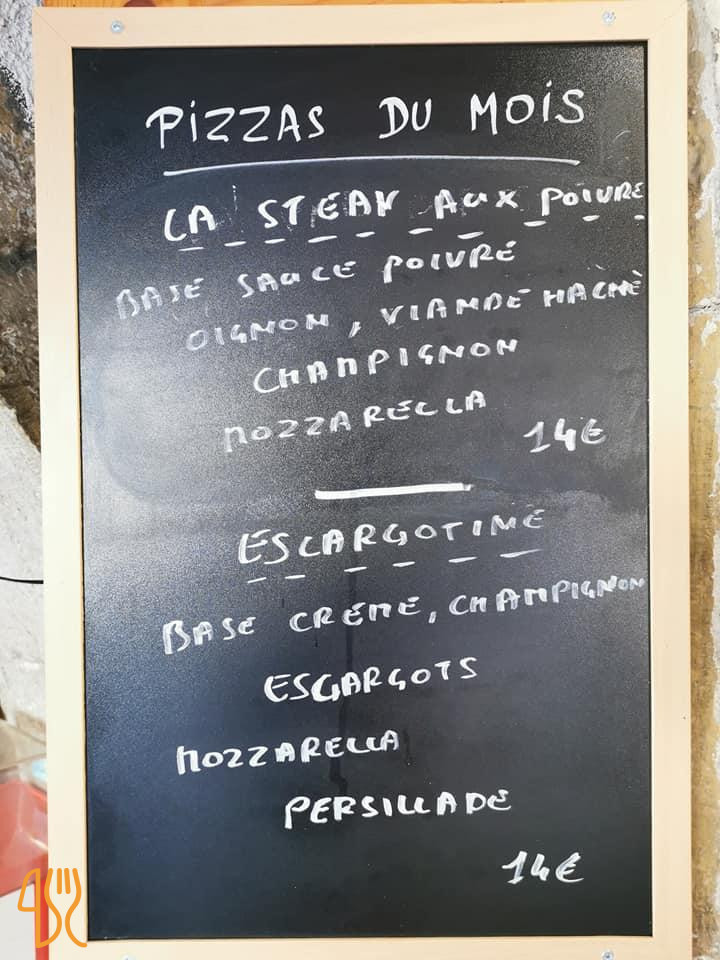 PIZZAS DU MOIS
LA STEAK AUX POIVRE
BASE SAUCE POIVRE
OIGNON, VIANDE HACHÉ
CHAMPIGNON
MOZZARELLA
14€
ESCARGOTINE
BASE CREME, CHAMPIGNON
ESGARGOTS
MOZZARELLA
PERSILLADE
14€